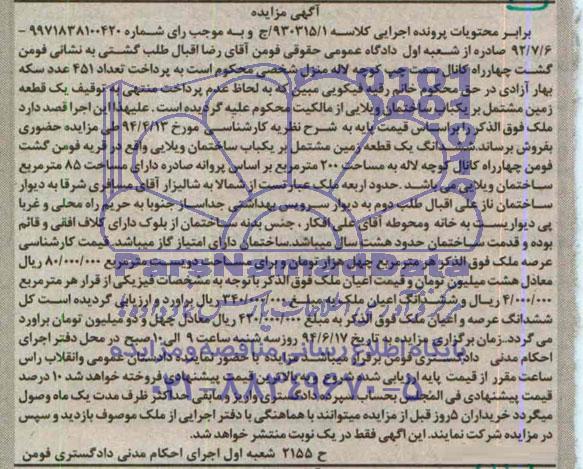 آگهی مزایده
برابر محتویات پرونده اجرایی کلاسه ۹۳۰۳۱۵/۱/ج و به موجب رای شماره ۹۹۷۱۸۳۸۱۰۰۴۲۰ –
۹۲/۷/۶ صادره از شعبه اول دادگاه عمومی حقوقی فومن آقای رضا اقبال طلب گشتی به نشانی فومن
گشت چهارراه کانال ست چپ کوچه لاله منزل شخصی محکوم است به پرداخت تعداد ۴۵۱ عدد سکه
بهار آزادی در حق محکوم خانم رقیه فیکویی مبین که به لحاظ عدم پرداخت منتهی به توقیف یک قطعه
زمین مشتمل بر یکباب ساختمان ویلایی از مالکیت محکوم علیه گردیده است . علیهذا این اجرا قصد دارد
ملک فوق الذکر را براساس قیمت پایه به شرح نظریه کارشناسی مورخ ۹۴/۴/۱۳ طی مزایده حضوری
بفروش برساند. ششدانگ یک قطعه زمین مشتمل بر یکباب ساختمان ویلایی واقع در قریه فومن گشت
فومن چهارراه کانال کوچه لاله به مساحت ۲۰۰ مترمربع بر اساس پروانه صادره دارای مساحت ۸۵ مترمربع
ساختمان ویلایی می باشد . حدود اربعه ملک عبارتست از شمالا به شالیزار آقای مسافری شرقا به دیوار
ساختمان ناز علی اقبال طلب دوم به دیوار سرویس بهداشتی جداساز جنوبا به حریم راه محلی و غربا
پی دیواریست به خانه ومحوطه آقای علی افکار ، جنس بدنه ساختمان از بلوک دارای کلاف افقی و قائم
بوده و قدمت ساختمان حدود هشت سال میباشد.ساختمان دارای امتیاز گاز میباشد. قیمت کارشناسی
عرصه ملک فوق الذکر هر مترمربع چهل هزار تومان و برای مساحت دویست مترمربع ۸۰/۰۰۰/۰۰۰ ریال
معادل هشت میلیون تومان و قیمت اعیان ملک فوق الذکر باتوجه به مشخصات فیزیکی از قرار هر مترمربع
۴/۰۰۰/۰۰۰ ریال و ششدانگ اعیان ملک به مبلغ ۳۴۰/۰۰۰/۰۰۰ ریال براورد و ارزیابی گردیده است کل
ششدانگ عرصه و اعیان ملک فوق الذکر به مبلغ ۴۲۰/۰۰۰/۰۰۰ ریال معادل چهل و دو میلیون تومان براورد
می گردد.زمان برگزاری مزایده به تاریخ ۹۴/۶/۱۷ روزسه شنبه ساعت ۹ الی۱۰ صبح در محل دفتر اجرای
احکام مدنی دادگستری فومن برقرار میباشد. مزایده با حضور نماینده دادستان عمومی وانقلاب راس
ساعت مقرر از قیمت پایه ارزیابی شده شروع و به بالاترین قیمت پیشنهادی فروخته خواهد شد ۱۰ درصد
قیمت پیشنهادی فی المجلس بحساب سپرده دادگستری واریز و مابقی حداکثر ظرف مدت یک ماه وصول
میگردد خریداران ۵روز قبل از مزایده میتوانند با هماهنگی با دفتر اجرایی از ملک موصوف بازدید و سپس
در مزایده شرکت نمایند. این اگهی فقط در یک نوبت منتشر خواهد شد.
ح ۲۱۵۵ شعبه اول اجرای احکام مدنی دادگستری فومن
ParsNamadData
پایگاه اطلاع رسانی مناقصه و مزایده
۰۲۱-۸۸۳۴۹۶۷۰-۵